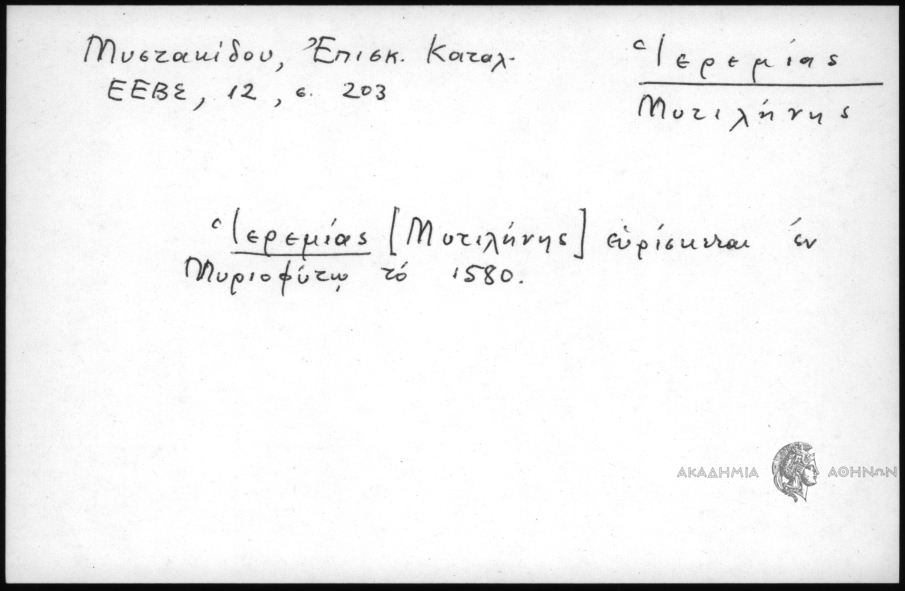 Μυστακίδου, Ἐπισκ. Καταλ.
ΕΕΒΣ, 12, σ. 203
Ἱερεμίας
Μυτιλήνης
Ἱερεμίας [Μυτιλήνης] εὑρίσκεται ἐν
Μυριοφύτῳ τό 1580.
ΑΚΑΔΗΜΙΑ ΑΘΗΝΩΝ